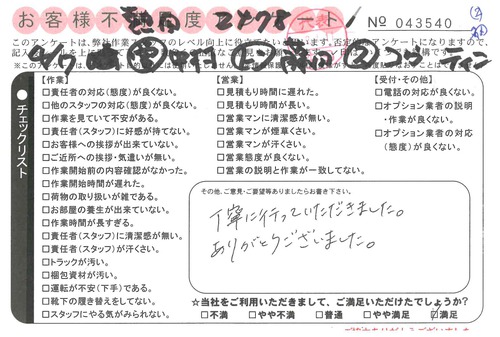 お客様不満度アンケート
№ 043540
このアンケートは、弊社作業
チェックリスト
【作業】
□責任者の対応(態度)が良くない。
□他のスタッフの対応(態度)が良くない。
□作業を見ていて不安がある。
□責任者(スタッフ)に好感が持てない。
□お客様への挨拶が出来ていない。
□ご近所への挨拶・気遣いが無い。
□作業開始前の内容確認がなかった。
□作業開始時間が遅れた。
□荷物の取り扱いが雑である。
□お部屋の養生が出来ていない。
□作業時間が長すぎる。
□責任者(スタッフ)に清潔感が無い。
□責任者(スタッフ)が汗くさい。
□トラックが汚い。
□梱包資材が汚い。
□運転が不安(下手)である。
□靴下の履き替えをしてない。
□スタッフにやる気がみられない。
【営業】
□見積もり時間に遅れた。
□見積もり時間が長い。
□営業マンに清潔感が無い。
□営業マンが煙草くさい。
□営業マンが汗くさい。
□営業態度が良くない。
□営業の説明と作業が一致してない。
【受付・その他】
□電話の対応が良くない。
□オプション業者の説明
・作業が良くない。
□オプション業者の対応
(態度)が良くない。
その他、ご意見・ご要望等ありましたらお書き下さい。
丁寧に行っていただきました。
ありがとうございました。
☆当社をご利用いただきまして、ご満足いただけたでしょうか?
□不満 □やや不満 □普通 □やや満足 ☑満足